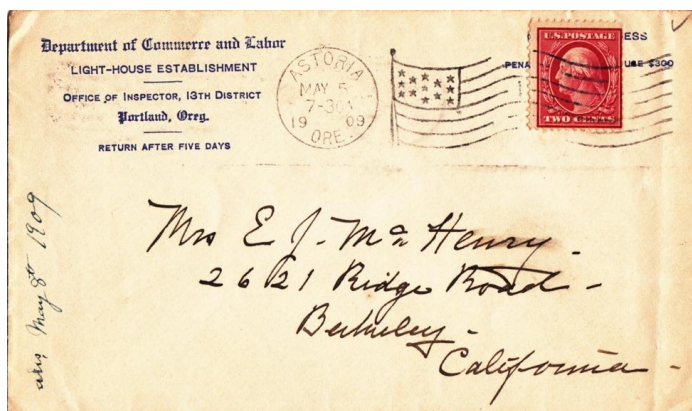 Department of Commerce and Labor
LIGHT-HOUSE ESTABLISHMENT
OFFICE OF INSPECTOR, 13TH DISTRICT
Portland, Oreg.
RETURN AFTER FIVE DAYS
ASTORIA
MAY 5
7-30
19 09
ORE.
ESS
PENA
USE $300
U.S. POSTAGE
TWO CENTS
Mrs E J. Mc Henry.
2621 Ridge Road -
Berkeley -
California -
May 8th 1909